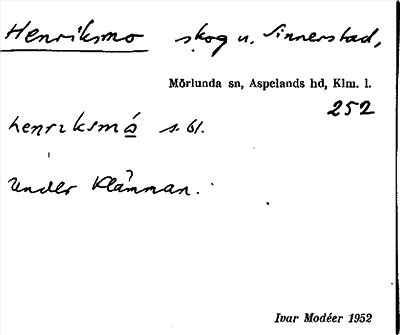 Henriksmo skog u. Sinnerstad,
Mörlunda sn, Aspelands hd, Klm. l.
252
henriksmå s. bl.
Under Klämman.
Ivar Modéer 1952